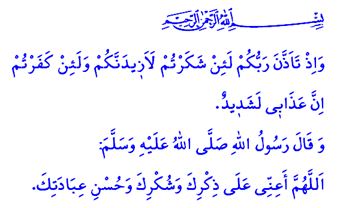 بِسْمِ اللّٰهِ الرَّحْمٰنِ الرَّحِيمِ
وَاِذْ تَاَذَّنَ رَبُّكُمْ لَئِنْ شَكَرْتُمْ لَاَزِيدَنَّكُمْ وَلَئِنْ كَفَرْتُمْ
اِنَّ عَذَابِي لَشَدِيدٌ.
وَ قَالَ رَسُولُ اللهِ صَلَّى اللهُ عَلَيْهِ وَسَلَّمَ:
اَللَّهُمَّ أَعِنِّى عَلَى ذِكْرِكَ وَشُكْرِكَ وَحُسْنِ عِبَادَتِكَ.